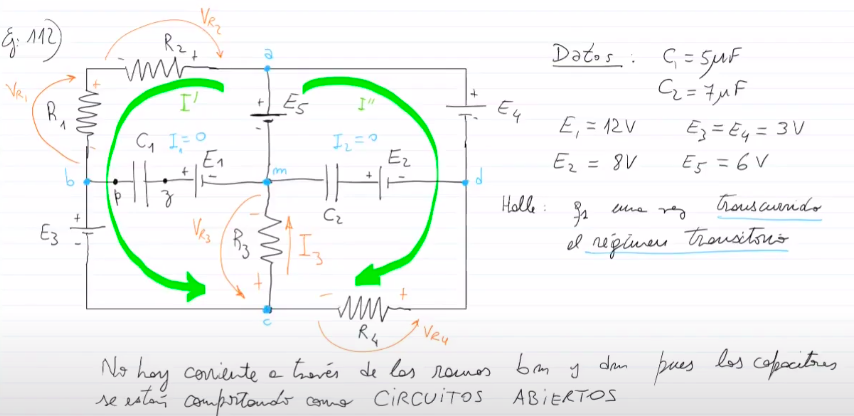 Ej: 112)
V_R2
R_2
- +
a
V_R1
+
R_1
-
I'
+ E_5
-
I''
+ E_4
-
C_1
I_1=0
E_1
+ -
I_2=0
E_2
+ -
b
p
z
m
C_2
d
E_3
+
-
V_R3
-
R_3
+
I_3
c
- +
R_4
V_R4
Datos: C_1 = 5μF
C_2 = 7μF
E_1 = 12V E_3 = E_4 = 3V
E_2 = 8V E_5 = 6V
Halle: una vez transcurrido
el régimen transitorio
No hay corriente a través de los ramos bm y dm pues los capacitores
se están comportando como CIRCUITOS ABIERTOS